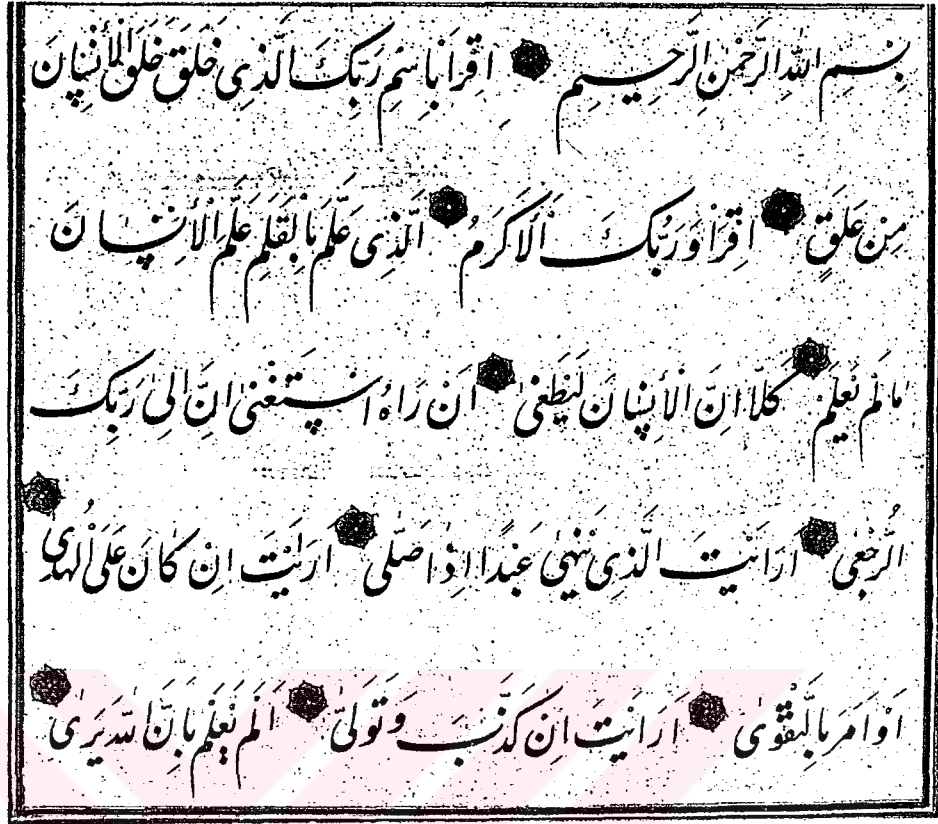 بِسْمِ اللهِ الرَّحْمٰنِ الرَّحِيمِ اِقْرَأْ بِاسْمِ رَبِّكَ الَّذِى خَلَقَ خَلَقَ الْأِنْسَانَ
مِنْ عَلَقٍ اِقْرَأْ وَرَبُّكَ الْأَكْرَمُ الَّذِى عَلَّمَ بِالْقَلَمِ عَلَّمَ الْأِنْسَانَ
مَالَمْ يَعْلَمْ كَلَّا اِنَّ الْأِنْسَانَ لَيَطْغٰى اَنْ رَاٰهُ اسْتَغْنٰى اِنَّ اِلٰى رَبِّكَ
الرُّجْعٰى اَرَاَيْتَ الَّذِى يَنْهٰى عَبْدًا اِذَا صَلّٰى اَرَاَيْتَ اِنْ كَانَ عَلَى الْهُدٰى
اَوْ اَمَرَ بِالتَّقْوٰى اَرَاَيْتَ اِنْ كَذَّبَ وَتَوَلّٰى اَلَمْ يَعْلَمْ بِاَنَّ اللهَ يَرٰى